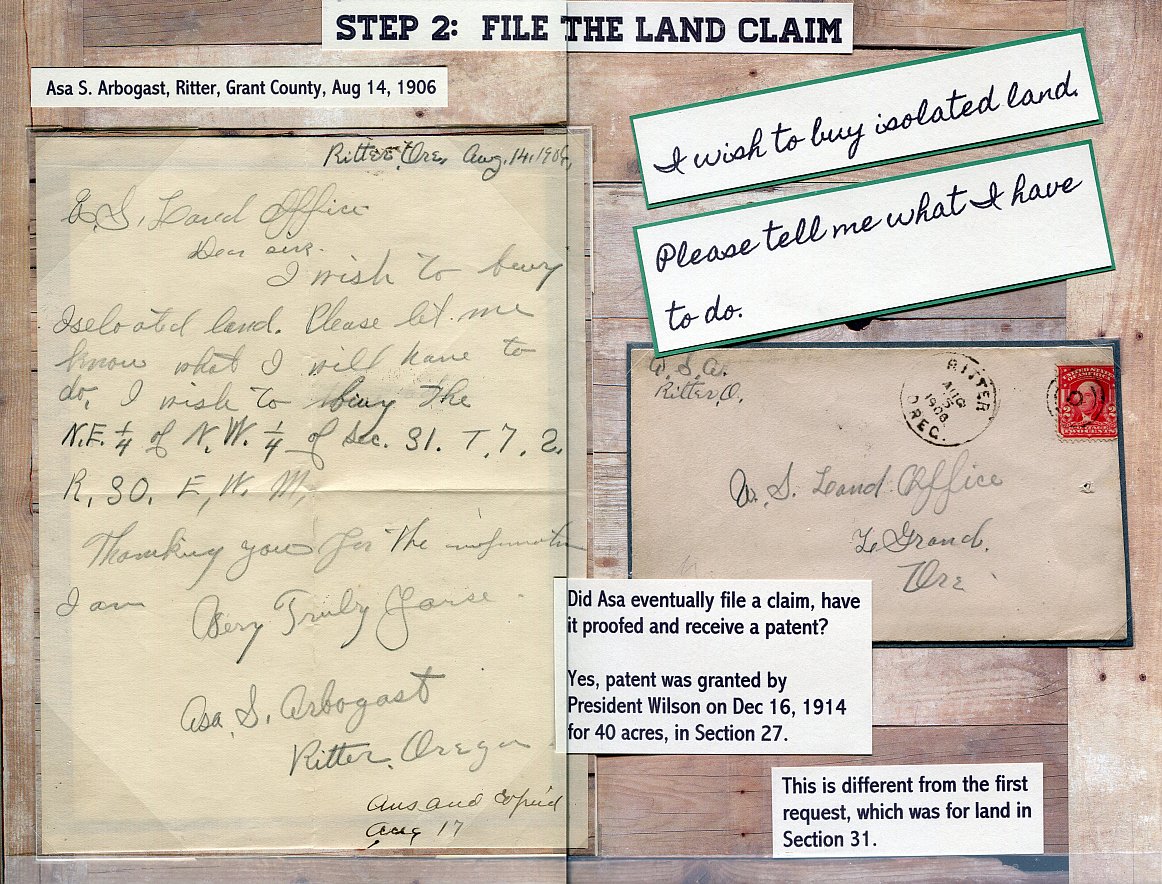 STEP 2: FILE THE LAND CLAIM
Asa S. Arbogast, Ritter, Grant County, Aug 14, 1906
Ritter, Ore, Aug. 14. 1906,
U. S. Land Office
Dear sirs.
I wish to buy
Iseloated land. Please let me
know what I will have to
do, I wish to buy the
N.E. 1/4 of N.W. 1/4 of Sec. 31. T. 7. 2.
R, 30, E, W. M,
Thanking you for the information
I am
Very Truly Yorse.
Asa, S. Arbogast
Ritter, Oregon
Ans and Copied
Aug 17
I wish to buy isolated land.
Please tell me what I have
to do.
A. S. A.
Ritter, O.
RITTER
AUG
15
1906
OREG.
UNITED STATES
OF AMERICA
2 2
TWO CENTS
U. S. Land Office
Le Grand.
Ore
Did Asa eventually file a claim, have
it proofed and receive a patent?
Yes, patent was granted by
President Wilson on Dec 16, 1914
for 40 acres, in Section 27.
This is different from the first
request, which was for land in
Section 31.